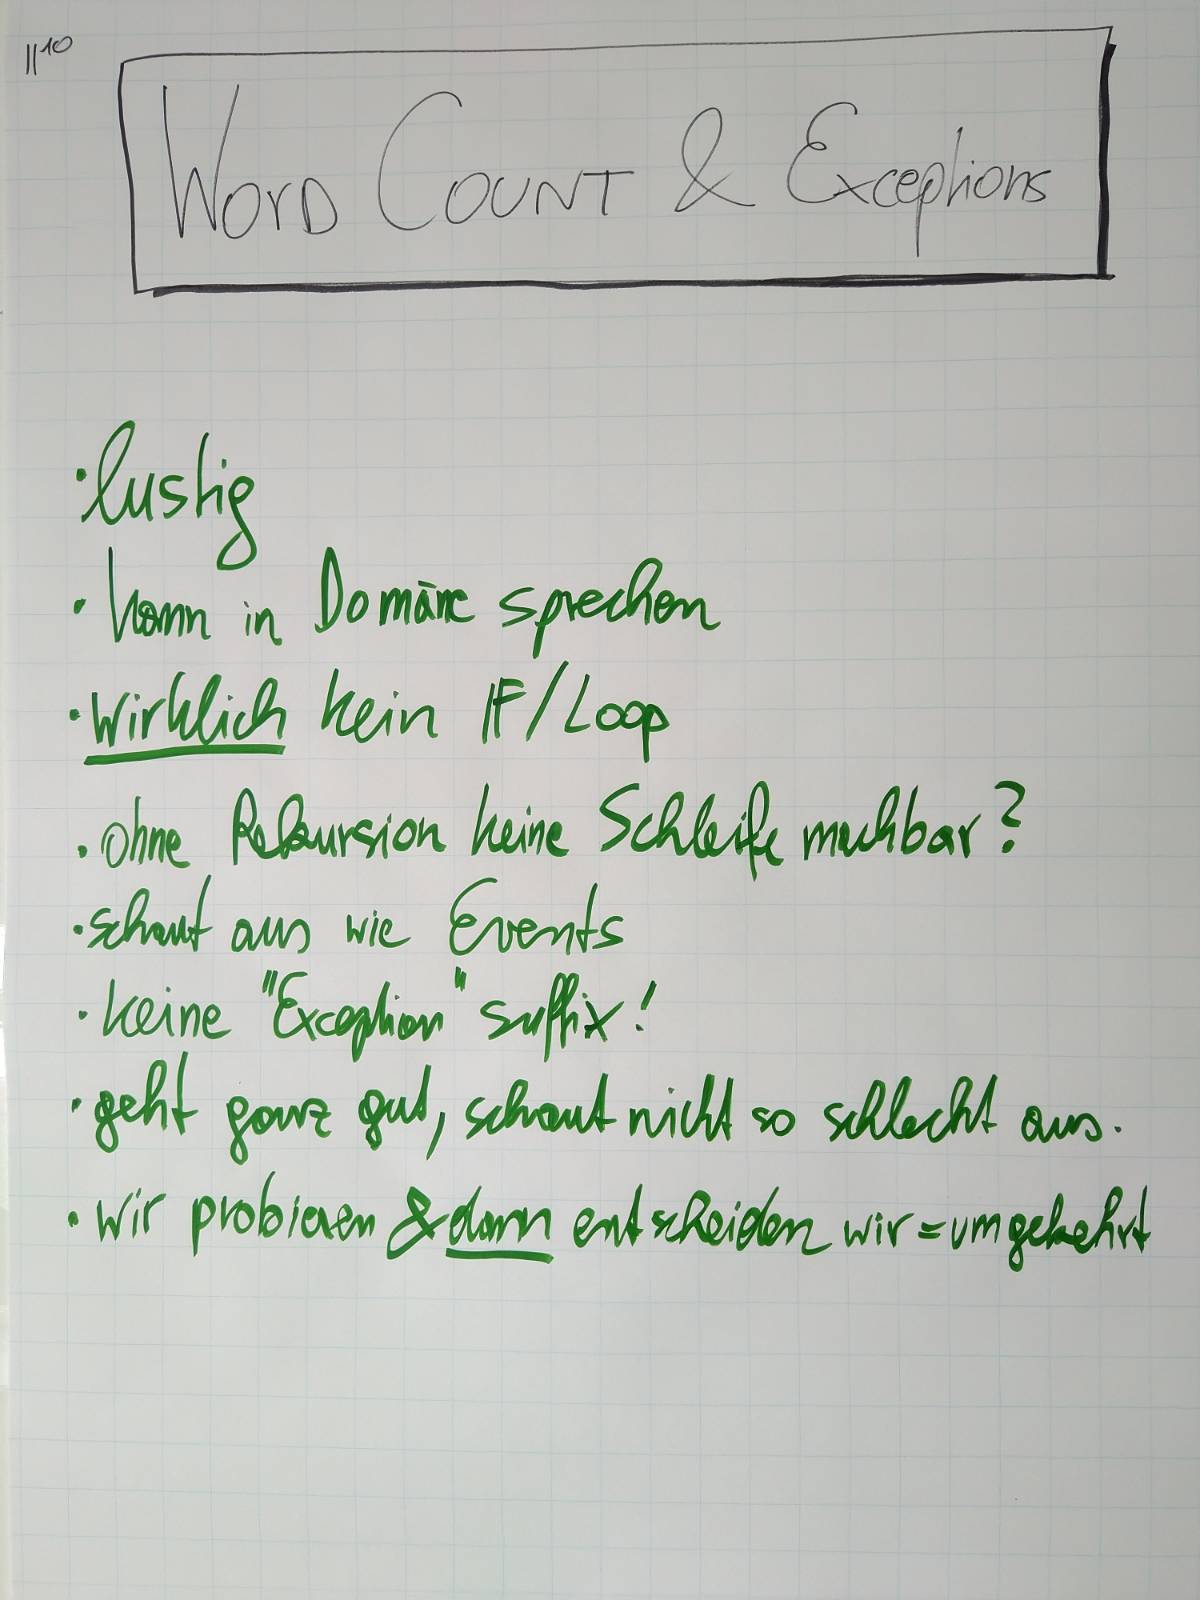 11¹⁰
WORD COUNT & Exceptions
• lustig
• kann in Domäne sprechen
• wirklich kein IF/Loop
• ohne Rekursion keine Schleife machbar?
• schaut aus wie Events
• keine "Exception" suffix!
• geht ganz gut, schaut nicht so schlecht aus.
• wir probieren & dann entscheiden wir = umgekehrt